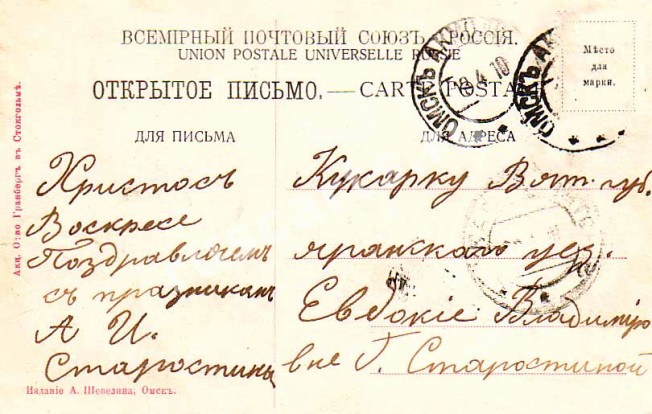 ВСЕМІРНЫЙ ПОЧТОВЫЙ СОЮЗЪ. РОССІЯ.
UNION POSTALE UNIVERSELLE
ОТКРЫТОЕ ПИСЬМО. — CARTE POSTALE
Мѣсто
для
марки.
ОМСКЪ
18.4.10
ОМСКЪ
ДЛЯ ПИСЬМА
ДЛЯ АДРЕСА
Христосъ
Воскресе
Поздравляемъ
съ празникам
А И.
Старостины
Кукарку Вят. губ.
яранскаго уез.
Евдокіе Владиміро
вне Г. Старостиной
Акц. О-во Гранбергъ въ Стокгольмѣ.
Изданіе А. Шевелина, Омскъ.